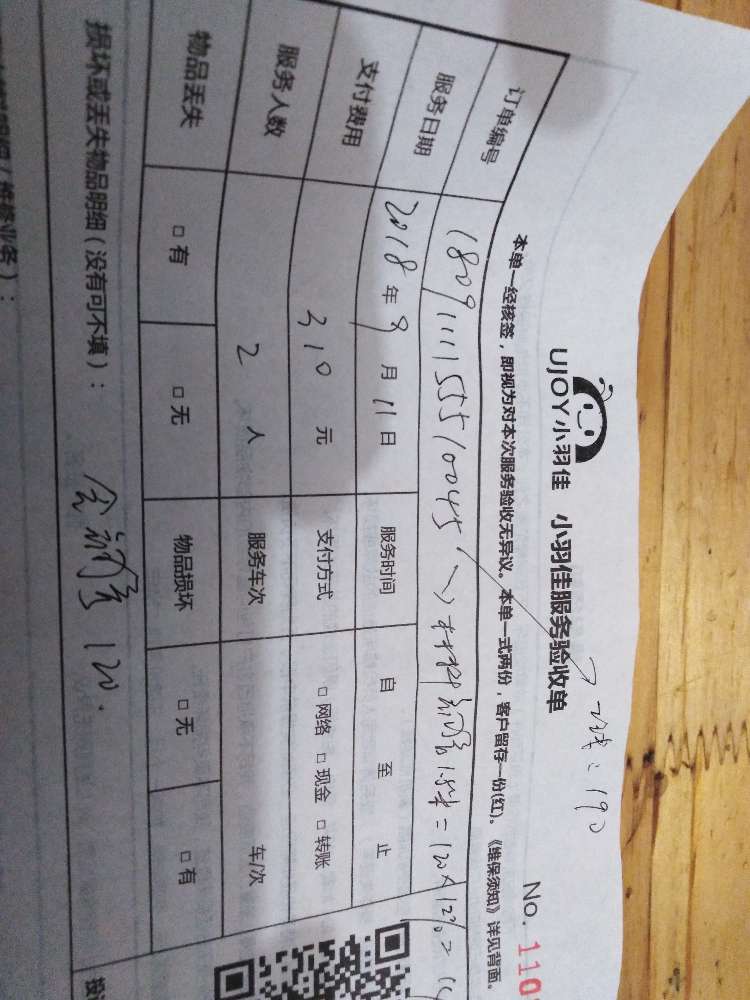 2块=190
UJOY小羽佳 小羽佳服务验收单
No. 110
本单一经核签，即视为对本次服务验收无异议。本单一式两份，客户留存一份(红)。《维保须知》详见背面。
订单编号 1809111155510045
=120×12%=1
服务日期 2018年9月11日 服务时间 自 至 止
支付费用 310 元 支付方式 □网络 □现金 □转账
服务人数 2 人 服务车次 车/次
物品丢失 □有 □无 物品损坏 □无 □有
损坏或丢失物品明细（没有可不填）：
120.